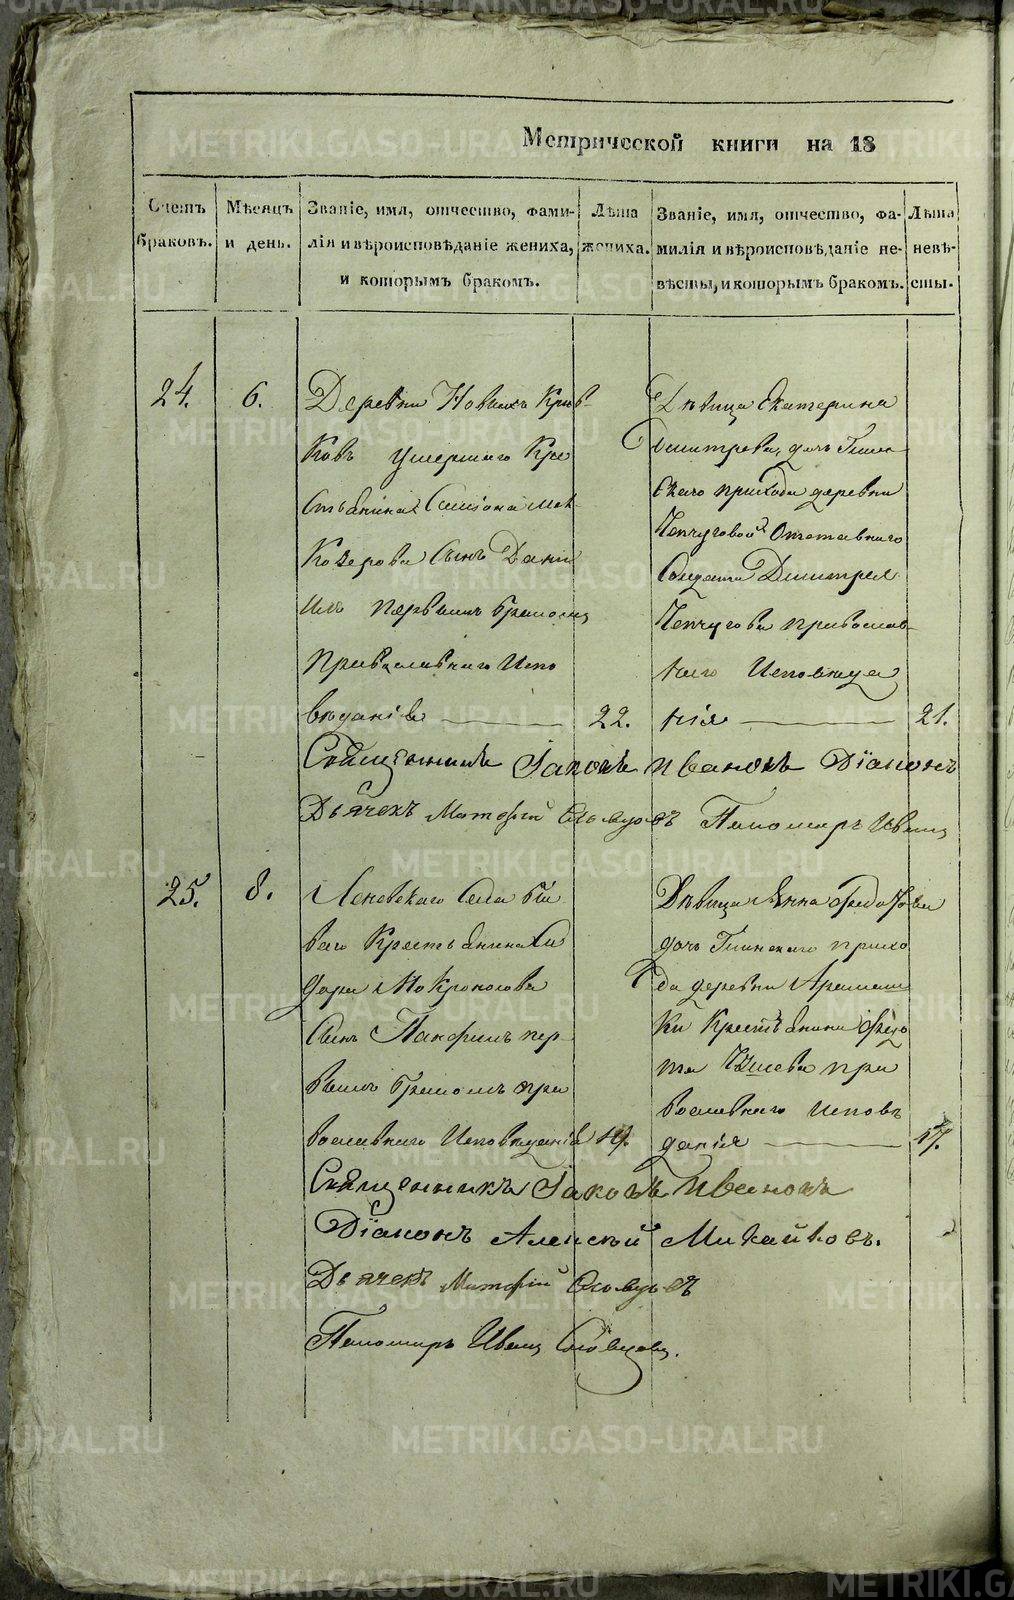 Метрической книги на 18
Счетъ браковъ.
Мѣсяцъ и день.
Званіе, имя, отчество, фами-
лія и вѣроисповѣданіе жениха,
и которымъ бракомъ.
Лѣта жениха.
Званіе, имя, отчество, фа-
милія и вѣроисповѣданіе не-
вѣсты, и которымъ бракомъ.
Лѣта невѣ-
сты.
24.
6.
Деревни Новыхъ Крив-
ковъ умершаго Кре
стьянина Симіона Мок
Козерова сынъ Дани
илъ первымъ бракомъ
Православнаго Испо
вѣданія
22.
Дѣвица Екатерина
Димитрева дочь Глин
скаго прихода деревни
Чепчуговой Отставнаго
Солдата Димитрея
Чепчугова православ-
наго Исповѣда
нія
21.
Священникъ Іаковъ Ивановъ Діаконъ
Дьячекъ Матфій Пономарь Иванъ
25.
8.
Леневскаго Села
ваго Крестьянина Си
дора Мокроносова
Сынъ Панфилъ пер
вымъ бракомъ пра
вославнаго Исповѣданія
19.
Дѣвица Анна Федотова
дочь Глинскаго прихо
да деревни Арамаш
ки Крестьянина Федо
та пра
вославнаго исповѣ
данія
17.
Священникъ Іаковъ Ивановъ
Діаконъ Алексѣй Михайловъ.
Дьячекъ Матфій
Пономарь Иванъ Словцовъ.
METRIKI.GASO-URAL.RU